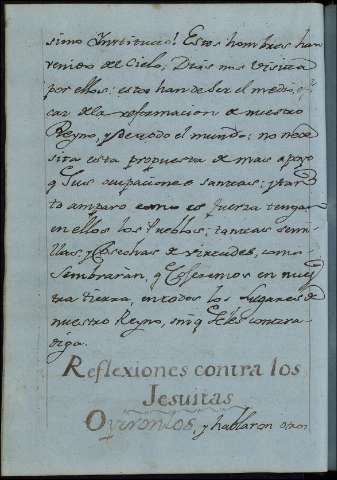 simo Instituto! Estos hombres han
venido del Cielo, Dios nos visita
por ellos: estos han de ser el medio
de la reformacion de nuestro
Reyno, y de todo el mundo: no nece
sita esta propuesta de mas apoyo
q̃ sus ocupaciones santas: y tan
to amparo como es fuerza tengan
en ellos los Pueblos: tantas semi
llas, y Cosechas de virtudes, como
Sembrarán, y Cogeremos en nues
tra tierra, en todos los Lugares de
nuestro Reyno, sin q̃ se les contra
diga.
Reflexiones contra los
Jesuitas
y hablaron otros